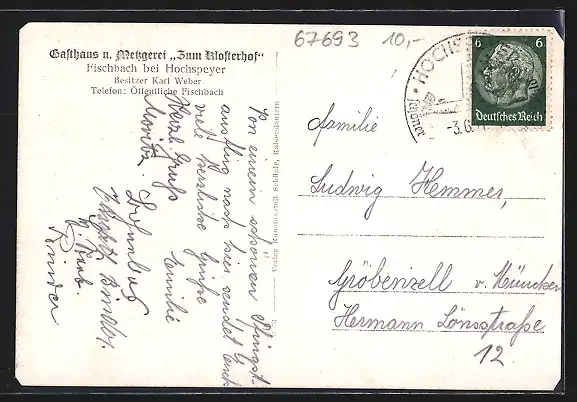 67693 10,-
Gasthaus u. Metzgerei „Zum Klosterhof"
Fischbach bei Hochspeyer
Besitzer Karl Weber
Telefon: Öffentliche Fischbach
Von einem schönen Pfingst-
ausflug nach hier sendet Euch
viele herzliche Grüße
Emilie
Herzl. Gruß
Moritz.
u. Frieb.
Kinder
Verlag Kunstanstalt Schäale, Kaiserslautern
HOCHSPEYER
-3.6.
6 6
Deutsches Reich
Familie
Ludwig Hemmer,
Gröbenzell v. München
Hermann Lönsstraße
12.